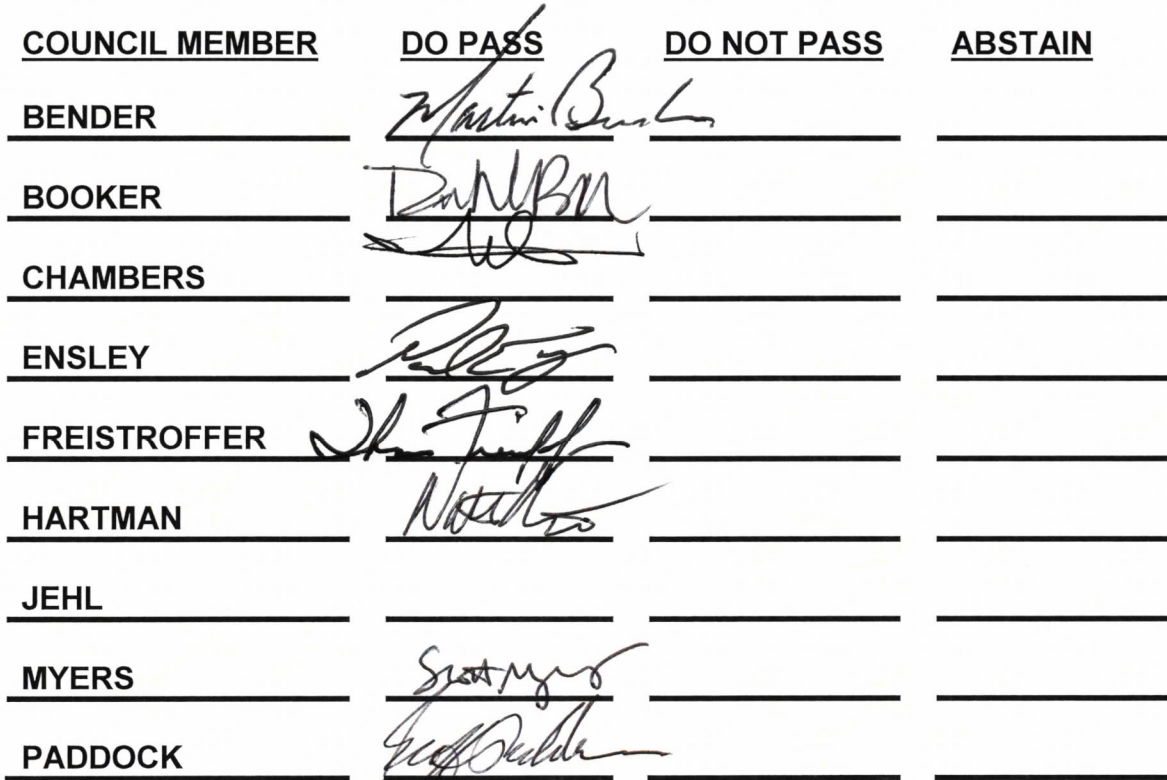 COUNCIL MEMBER DO PASS DO NOT PASS ABSTAIN
BENDER Martin Bender
BOOKER
CHAMBERS
ENSLEY Paul Ensley
FREISTROFFER
HARTMAN
JEHL
MYERS Scott Myers
PADDOCK Geoff Paddock